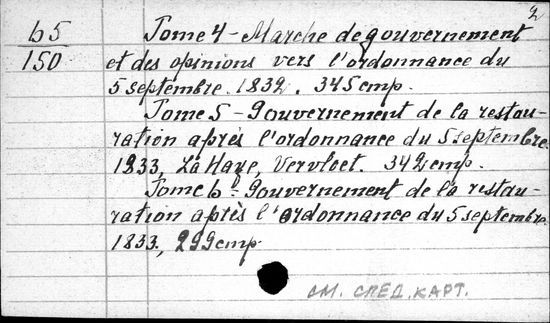 2
65/150 Tome 4 - Marche de gouvernement
et des opinions vers l'ordonnance du
5 septembre. 1832. 345 стр.
Tome 5 - Gouvernement de la restau-
ration après l'ordonnance du 5 septembre.
1933, La Haye, Vervloet. 342 стр.
Tome 6 - Gouvernement de la restau-
ration après l'ordonnance du 5 septembre
1833, 299 стр.
СМ. СЛЕД. КАРТ.